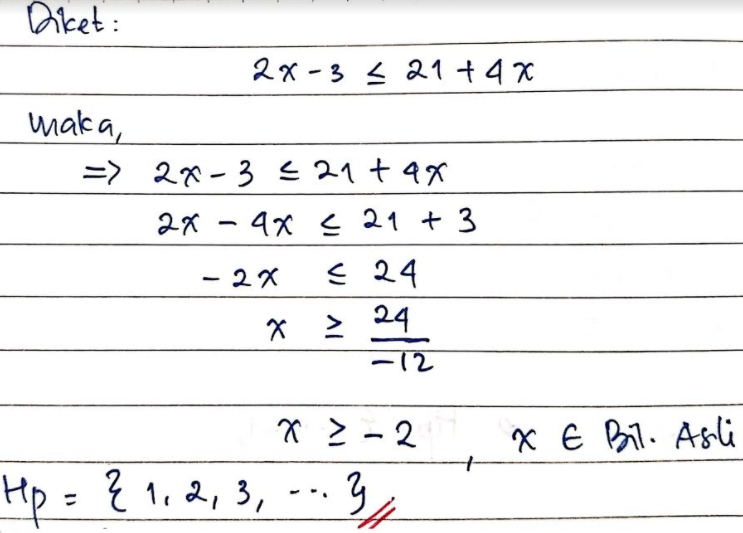 Diket:
2x - 3 ≤ 21 + 4x
maka,
=> 2x - 3 ≤ 21 + 4x
2x - 4x ≤ 21 + 3
- 2x ≤ 24
x ≥ 24
-12
x ≥ - 2 , x ∈ Bil. Asli
Hp = { 1, 2, 3, ... }